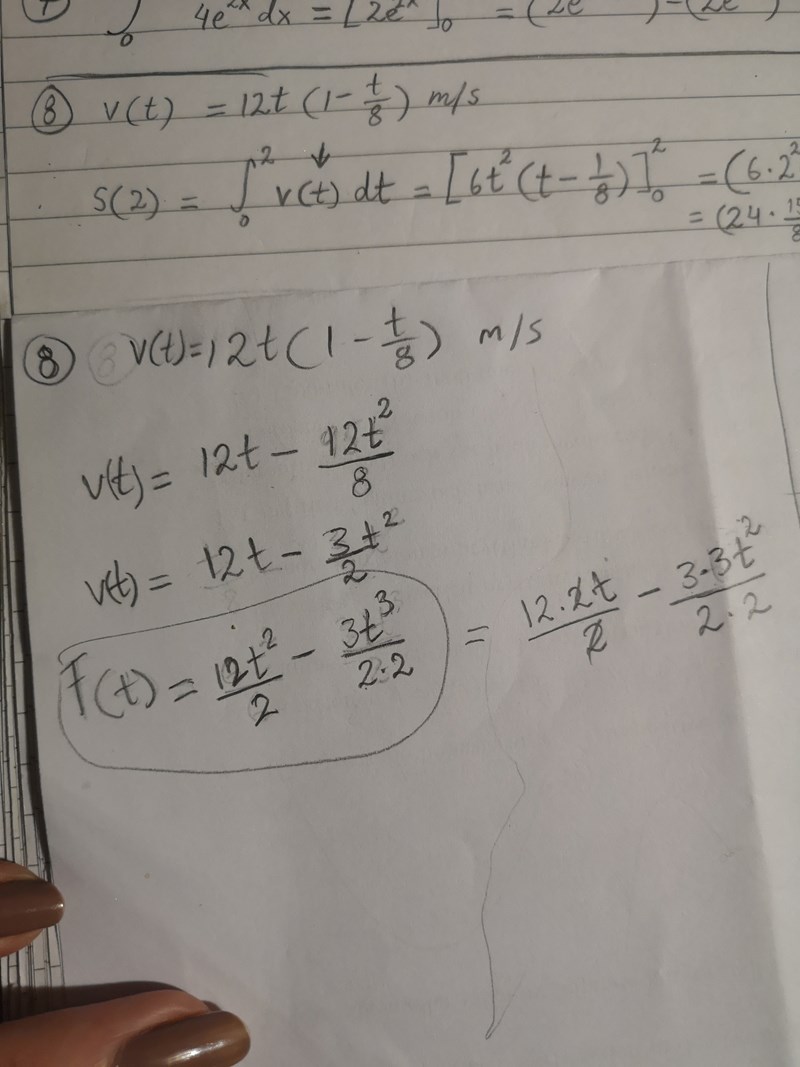 ∫₀ 4e²ˣ dx = [2e²ˣ]₀ = (2e ) - (2e )
⑧ v(t) = 12t (1 - t/8) m/s
S(2) = ∫₀² v(t) dt = [6t² (t - 1/8)]₀² = (6·2²
= (24 ·
⑧ v(t) = 12t (1 - t/8) m/s
v(t) = 12t - 12t²/8
v(t) = 12t - 3t²/2
F(t) = 12t²/2 - 3t³/2·2 = 12·2t/2 - 3·3t²/2·2